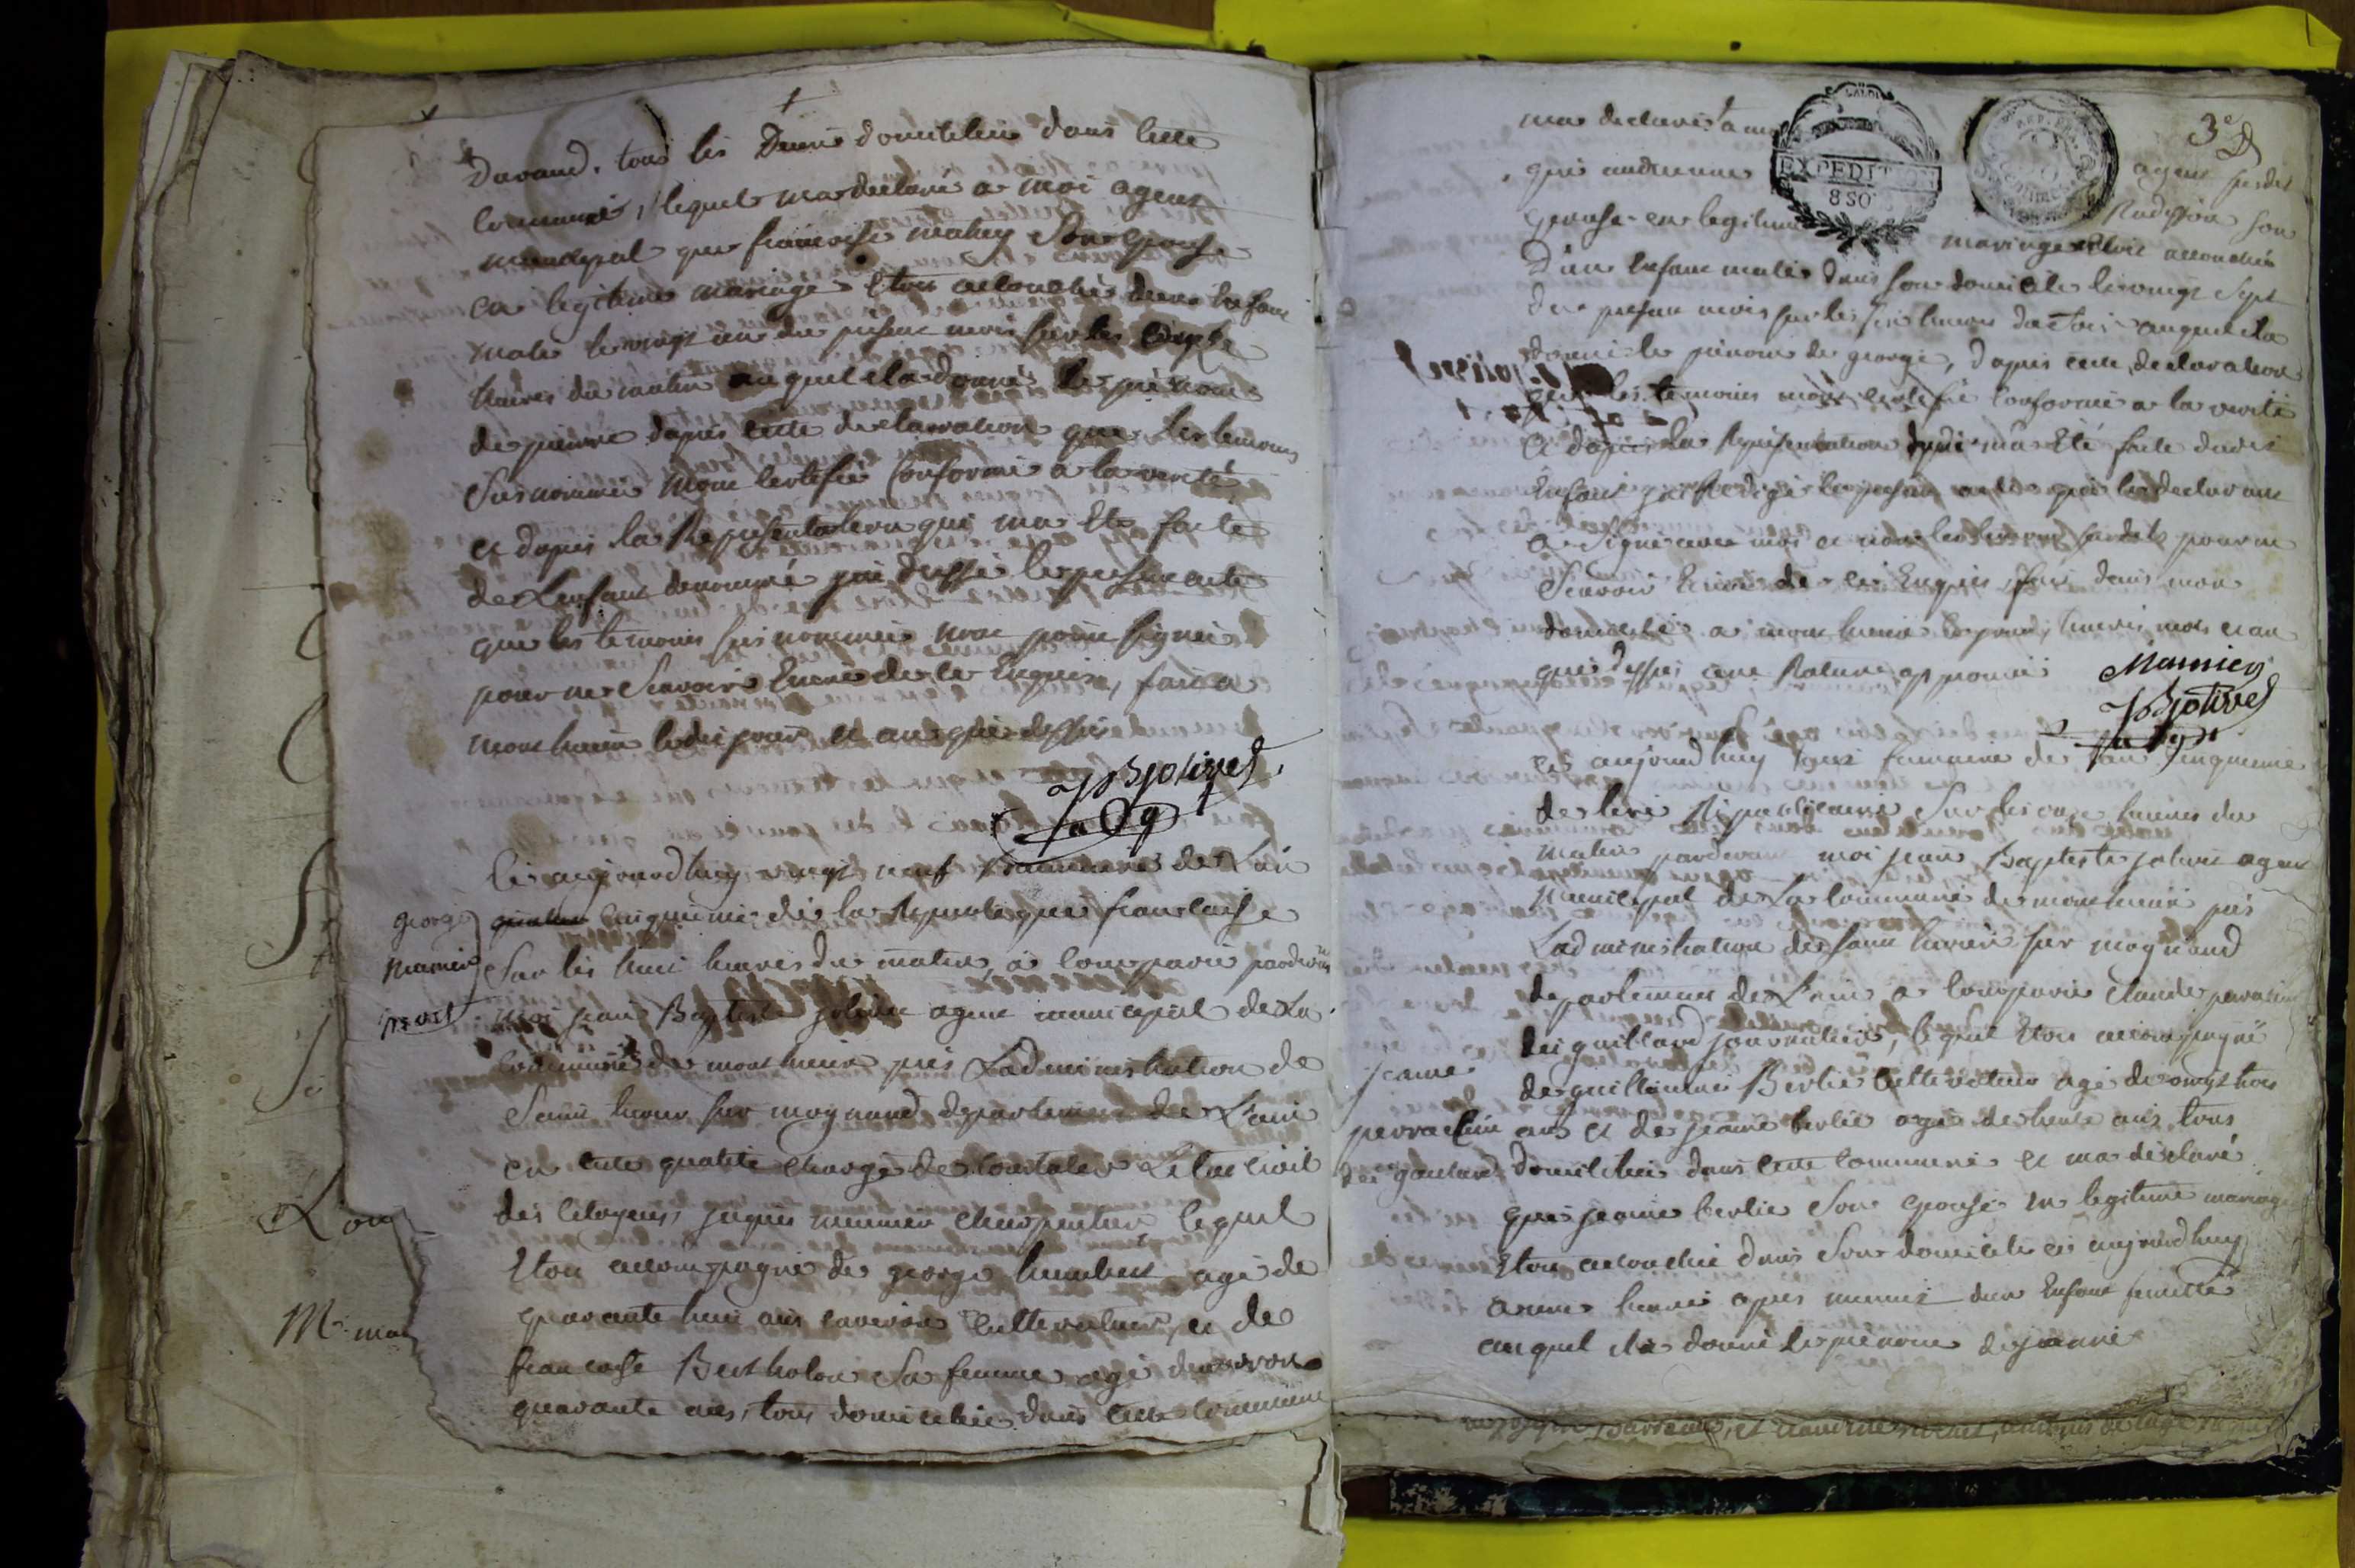 Durand. tous les Deux domicilies dans cette
Commune, lequel ma declaré a moi agent
municipal que francoise mahey son epouse
en legitime mariage Etoit accouchée dun Enfant
male le vingt un du present mois sur les
heures du matin auquel il a donné le prénom
de pierre dapres cette declaration que les temoins
susnommés mont certifié conforme a la verité
et dapres la Representation qui ma Eté faite
de Lenfant denommé jai dressé le present acte
que les temoins sus nommés nont point signé
pour ne scavoir Ecrire de ce Enquis, fait a
montluein ledit jour et an que dessus
JB jolivet
ag
Ce aujourdhuy vingt neuf de Lan
george
marnier
cinquieme de la Republique francaise
sur les huit heures du matin a comparu pardevant
moi jean Baptiste jolivet agent municipal de La
commune de montluein pres Ladministration de
Saint trivier sur mognand departement de Lain
en cette qualité chargé de constater Letat civil
des citoyens, charpentier lequel
Etoit accompagné de george humbert agé de
quarante huit ans environ cultivateur, et de
francoise Bertholon sa femme agé denviron
quarante ans, tous domicilies dans cette commune
Lou
M. ma
3e
ma declaré a moi agent susdit
que andrienne son
epouse en legitime mariage Etoit accouchée
Dun Enfant male dans son domicile le vingt sept
du present mois sur les six heures du soir auquel il a
donné le prénom de george, dapres cette declaration
que les temoins mont certifié conforme a la verité
et dapres La Representation qui ma Eté faite dudit
Enfant jai Redigé le present acte que le declarant
a signé avec moi et non les temoins susdits pour ne
scavoir Ecrire de ce Enquis, fait dans mon
domicile a montluein les jour, heure, mois et an
que dessus une Rature approuvé
EXPEDITION
8 SO
Marnier
JB jolivet
ag
Ce aujourdhuy frimaire de lan cinquieme
de lere Republicaine sur les onze heures du
matin pardevant moi jean Baptiste jolivet agent
municipal de La commune de montluein pres
Ladministration de saint trivier sur mognand
departement de Lain a comparu claude perraclin
des gaillard journalier, lequel Etoit accompagné
jeanne
perraclin
des gaillard
de guillaume Berlie cultivateur agé de vingt trois
ans et de jeanne berlie agé de trente ans tous
domicilies dans cette commune et ma declaré
que jeanne berlie son epouse en legitime mariage
Etoit accouchée dans son domicile ce aujourdhuy
a une heure apres minuit dun Enfant femelle
auquel il a donné le prénom de jeanne